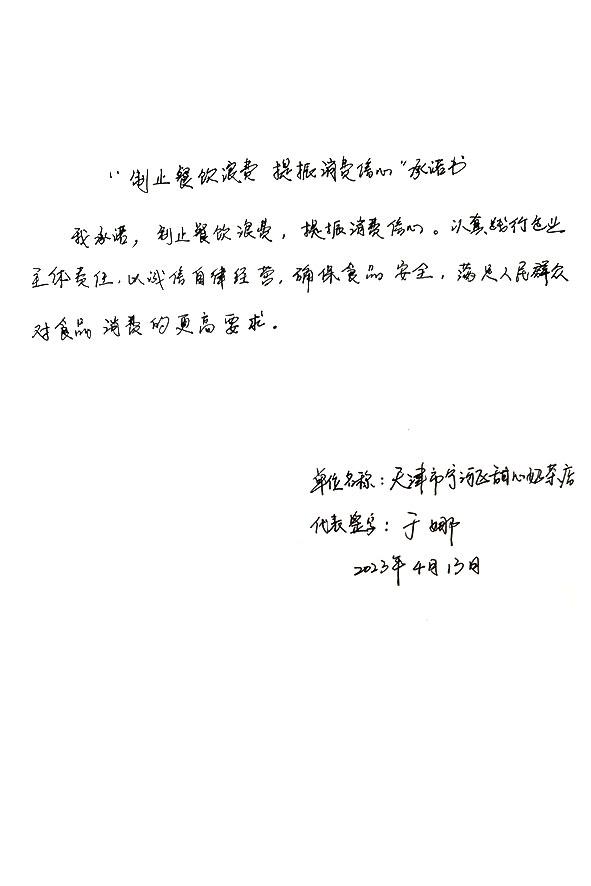 “制止餐饮浪费 提振消费信心”承诺书
我承诺，制止餐饮浪费，提振消费信心。认真践行企业
主体责任，以诚信自律经营，确保食品安全，满足人民群众
对食品消费的更高要求。
单位名称：天津市宁河区甜心奶茶店
代表签字：于娜
2023年4月13日